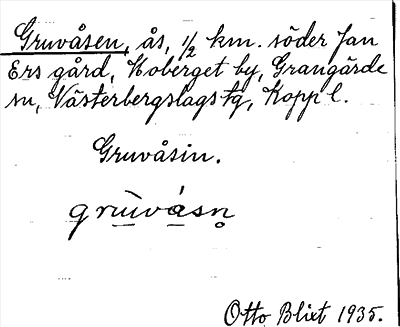 Gruvåsen, ås, 1/2 km. söder Jan
Ers gård, Hoberget by, Grangärde
sn, Västerbergslags tg, Kopp l.
Gruvåsin.
grùvásn̥
Otto Blixt 1935.